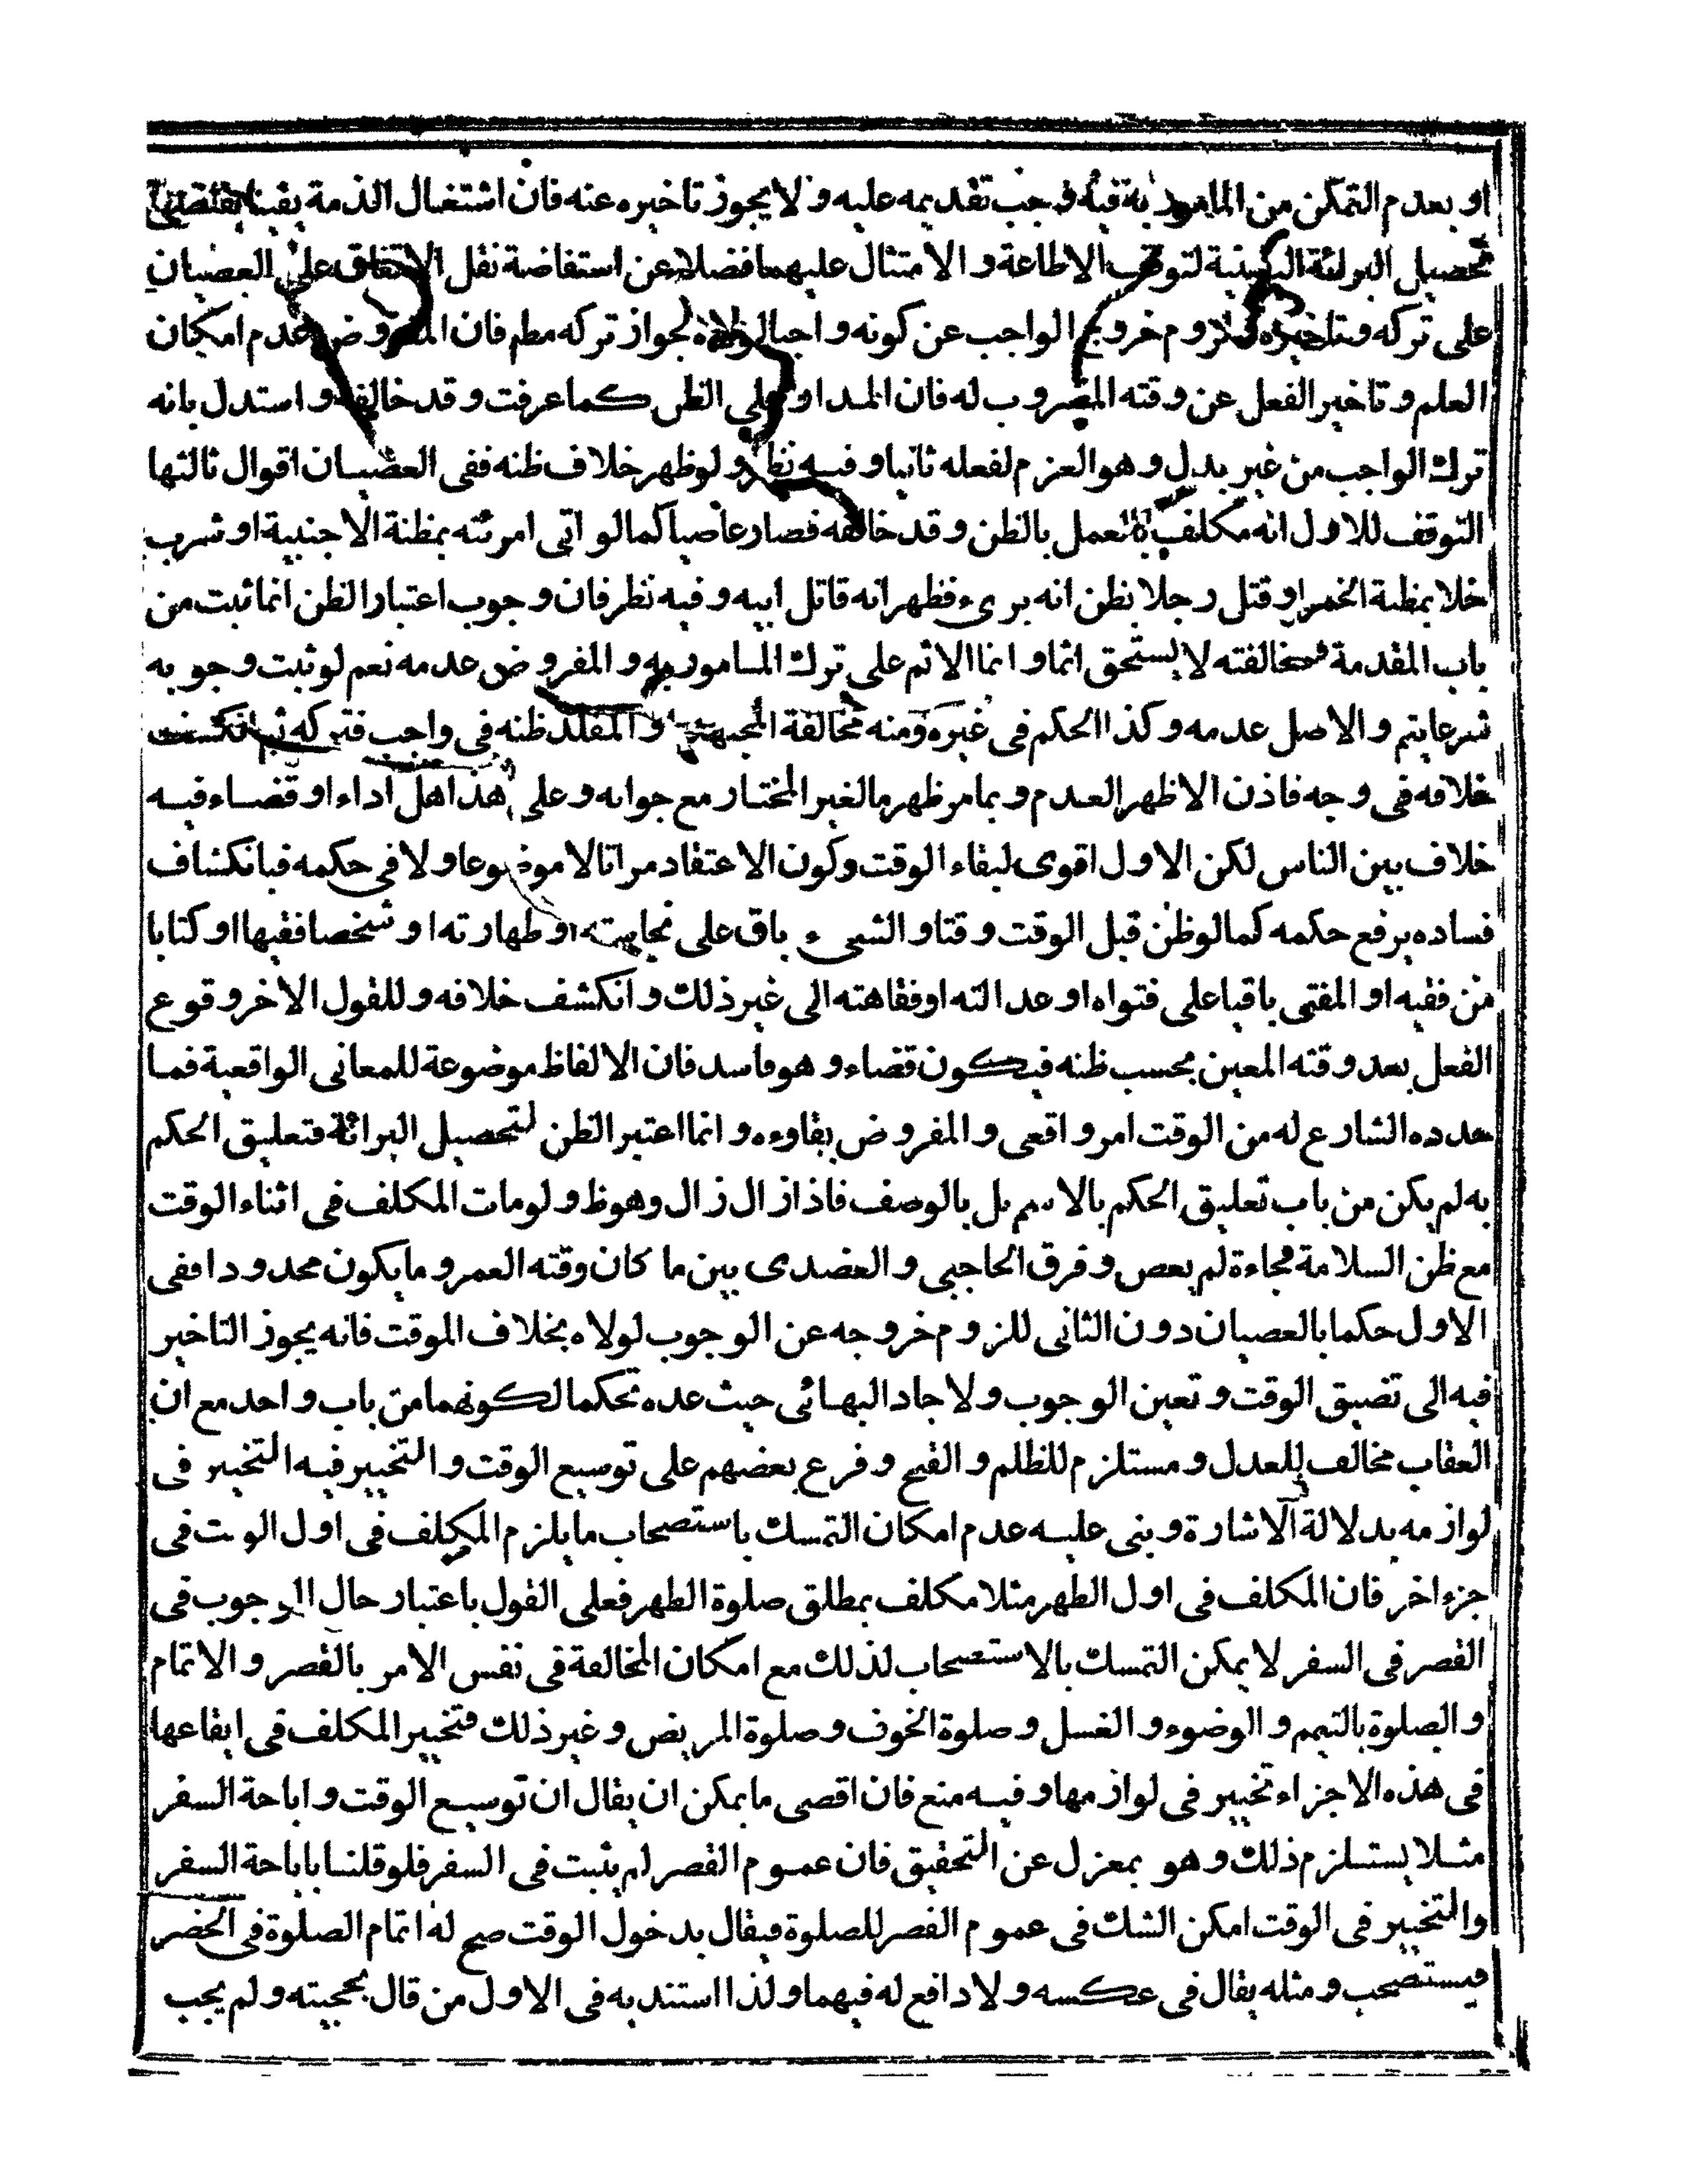 او بعدم التمكن من المامور به فيه وجب تقديمه عليه ولا يجوز تاخيره عنه فان اشتغال الذمة يقينا يقتضى
تحصيل البرائة اليقينية لتوقف الاطاعة و الامتثال عليهما فضلا عن استفاضة نقل الاتفاق على العصيان
على تركه وتاخيره ولزوم خروج الواجب عن كونه واجبا لولاه لجواز تركه مطم فان المفروض عدم امكان
العلم و تاخير الفعل عن وقته المضروب له فان المدار على الظن كما عرفت و قد خالفه و استدل بانه
ترك الواجب من غير بدل و هو العزم لفعله ثانيا و فيه نظر و لو ظهر خلاف ظنه ففى العصيان اقوال ثالثها
التوقف للاول انه مكلف بالعمل بالظن و قد خالفه فصار عاصيا كما لو اتى امرئته بمظنة الاجنبية او شرب
خلا بمظنة الخمر او قتل رجلا بظن انه برىء فظهر انه قاتل ابيه و فيه نظر فان وجوب اعتبار الظن انما ثبت من
باب المقدمة فمخالفته لا يستحق اثما و انما الاثم على ترك المامور به و المفروض عدمه نعم لو ثبت وجوبه
شرعا يتم و الاصل عدمه و كذا الحكم فى غيره و منه مخالفة المجتهد او المقلد ظنه فى واجب فتركه ثم انكشف
خلافه فى وجه فاذن الاظهر العدم و بما مر ظهر ما لغير المختار مع جوابه و على هذا هل اداء او قضاء فيه
خلاف بين الناس لكن الاول اقوى لبقاء الوقت وكون الاعتقاد مراتا لا موضوعا و لا فى حكمه فبانكشاف
فساده يرفع حكمه كما لو ظن قبل الوقت وقتا و الشىء باق على نجاسته او طهارته او شخصا فقيها او كتابا
من فقيه او المفتى باقيا على فتواه او عدالته او فقاهته الى غير ذلك و انكشف خلافه و للقول الاخر وقوع
الفعل بعد وقته المعين بحسب ظنه فيكون قضاء و هو فاسد فان الالفاظ موضوعة للمعانى الواقعية فما
حدده الشارع له من الوقت امر واقعى و المفروض بقاوءه و انما اعتبر الظن لتحصيل البرائة فتعليق الحكم
به لم يكن من باب تعليق الحكم بالاسم بل بالوصف فاذا زال زال وهو ظ و لو مات المكلف فى اثناء الوقت
مع ظن السلامة فجاءة لم يعص و فرق الحاجبى و العضدى بين ما كان وقته العمر و ما يكون محدودا ففى
الاول حكما بالعصيان دون الثانى للزوم خروجه عن الوجوب لولاه بخلاف الموقت فانه يجوز التاخير
فيه الى تضيق الوقت و تعين الوجوب و لا جاد البهائى حيث عده تحكما لكونهما من باب واحد مع ان
العقاب مخالف للعدل و مستلزم للظلم و القبح و فرع بعضهم على توسيع الوقت و التخيير فيه التخيير فى
لوازمه بدلالة الاشارة و بنى عليه عدم امكان التمسك باستصحاب ما يلزم المكلف فى اول الوقت فى
جزء اخر فان المكلف فى اول الظهر مثلا مكلف بمطلق صلوة الظهر فعلى القول باعتبار حال الوجوب فى
القصر فى السفر لا يمكن التمسك بالاستصحاب لذلك مع امكان المخالفة فى نفس الامر بالقصر و الاتمام
و الصلوة بالتيمم و الوضوء و الغسل و صلوة الخوف و صلوة المريض و غير ذلك فتخيير المكلف فى ايقاعها
فى هذه الاجزاء تخيير فى لوازمها و فيه منع فان اقصى ما يمكن ان يقال ان توسيع الوقت و اباحة السفر
مثلا يستلزم ذلك و هو بمعزل عن التحقيق فان عموم القصر لم يثبت فى السفر فلو قلنا باباحة السفر
والتخيير فى الوقت امكن الشك فى عموم القصر للصلوة فيقال بدخول الوقت صح له اتمام الصلوة فى الحضر
فيستصحب و مثله يقال فى عكسه و لا دافع له فيهما و لذا استند به فى الاول من قال بحجيته و لم يجب